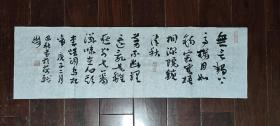 無言獨上
西樓月如
鈎寂寞梧
桐深院鎖
清秋
剪不斷理
還亂是離
愁別是一番
滋味在心頭
李煜詞烏夜
啼庚子三月